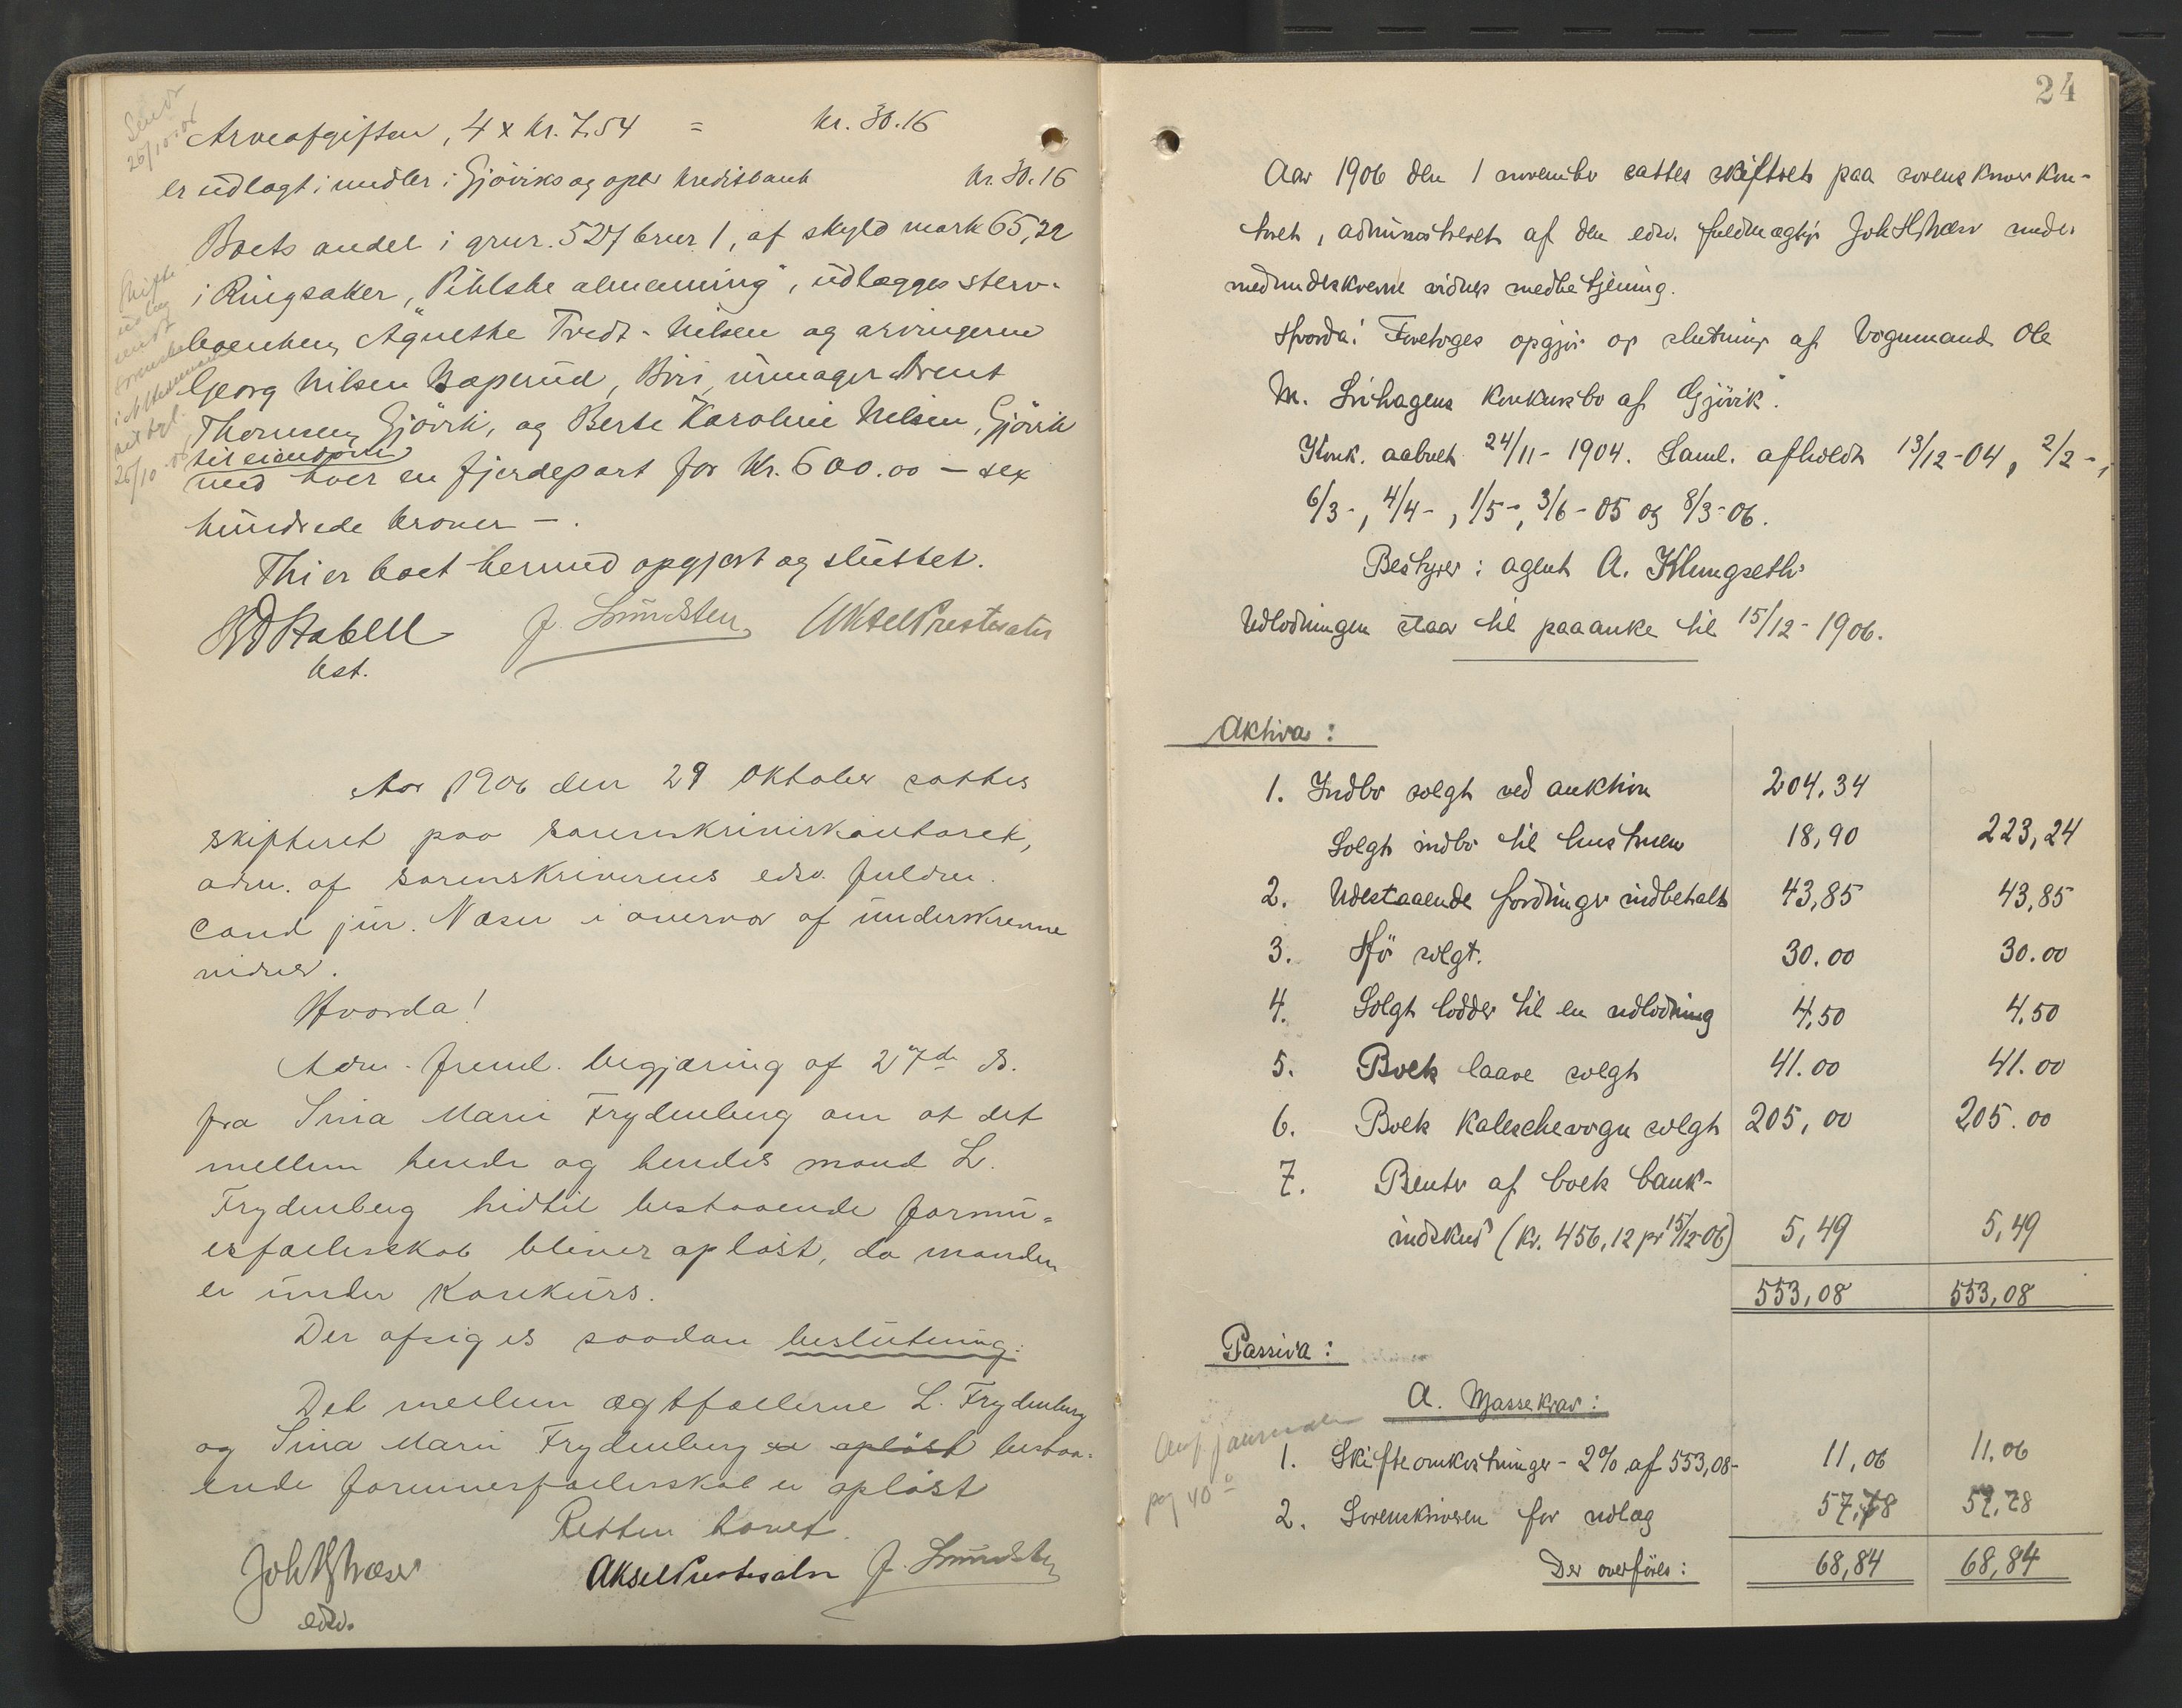 Sendt
26/10 06
Arveafgiften, 4 x kr. 7.54 = kr. 30.16
er udlagt i midler i Gjøviks og opl's kreditbank kr. 30.16
Boets andel i grnr. 527 brnr 1, af skyld mark 65,22
i Ringsaker, "Pihlske almenning", udlægges sterv-
boenken Agnethe Tvedt-Nilsen og arvingerne
Georg Nilsen Bæperud, Biri, urmager Brent
Thomsen, Gjøvik, og Berte Karoline Nilsen, Gjøvik
til eiendom
med hver en fjerdepart for kr. 600.00 – sex
hundrede kroner –.
Thi er boet hermed opgjort og sluttet.
J. Smedsten Aksel Prestesater
bst.
Aar 1906 den 29 oktober sattes
skifteret paa sorenskriverkontoret,
adm. af sorenskriverens edsv. fuldm.
cand jur. Næser i overvær af underskrevne
vidner.
Hvorda!
Adm. freml. begjæring af 27de ds.
fra Sina Marie Frydenberg om at det
mellem hende og hendes mand L.
Frydenberg hidtil bestaaende formu-
esfællesskab bliver opløst, da manden
er under konkurs.
Der afsiges saadan beslutning:
Det mellem ægtefællerne L. Frydenberg
og Sina Marie Frydenberg er opløst bestaa-
ende formuesfællesskab er opløst
Retten hævet.
Joh H Næser Aksel Prestesater J. Smedsten
edsv.
24
Aar 1906 den 1 november sattes skifteret paa sorenskriverkon-
toret, administreret af den edsv. fuldmægtig Joh H Næser under
nedenunderskrevne vidners medbetjening.
Hvorda: Foretoges opgjør og slutning af "Vognmand Ole
M. Lihagens konkursbo af Gjøvik".
Konk. aabnet 24/11-1904. Saml. afholdt 13/12-04, 2/2-,
6/3-, 4/4-, 1/5-, 3/6-05 og 8/3-06.
Bestyrer: agent A. Klungseth
Udlodningen staar til paaanke til 15/12-1906.
Aktiva:
1. Indbo solgt ved auktion 204,34
Solgt indbo til hustruen 18,90 223,24
2. Udestaaende fordringer indbetalt 43,85 43,85
3. Hø solgt. 30.00 30.00
4. Solgt lodder til en udlodning 4,50 4.50
5. Boets laave solgt 41.00 41.00
6. Boets kaleschevogn solgt 205,00 205.00
7. Renter af boets bank-
indskud (kr. 456,12 pr 15/12-06) 5,49 5,49
553,08 553,08
Passiva:
A. Massekrav:
1. Skifteomkostninger - 2% af 553,08- 11,06 11.06
pag 40
2. Sorenskriveren for udlæg 57,78 57,78
Der overføres: 68,84 68,84